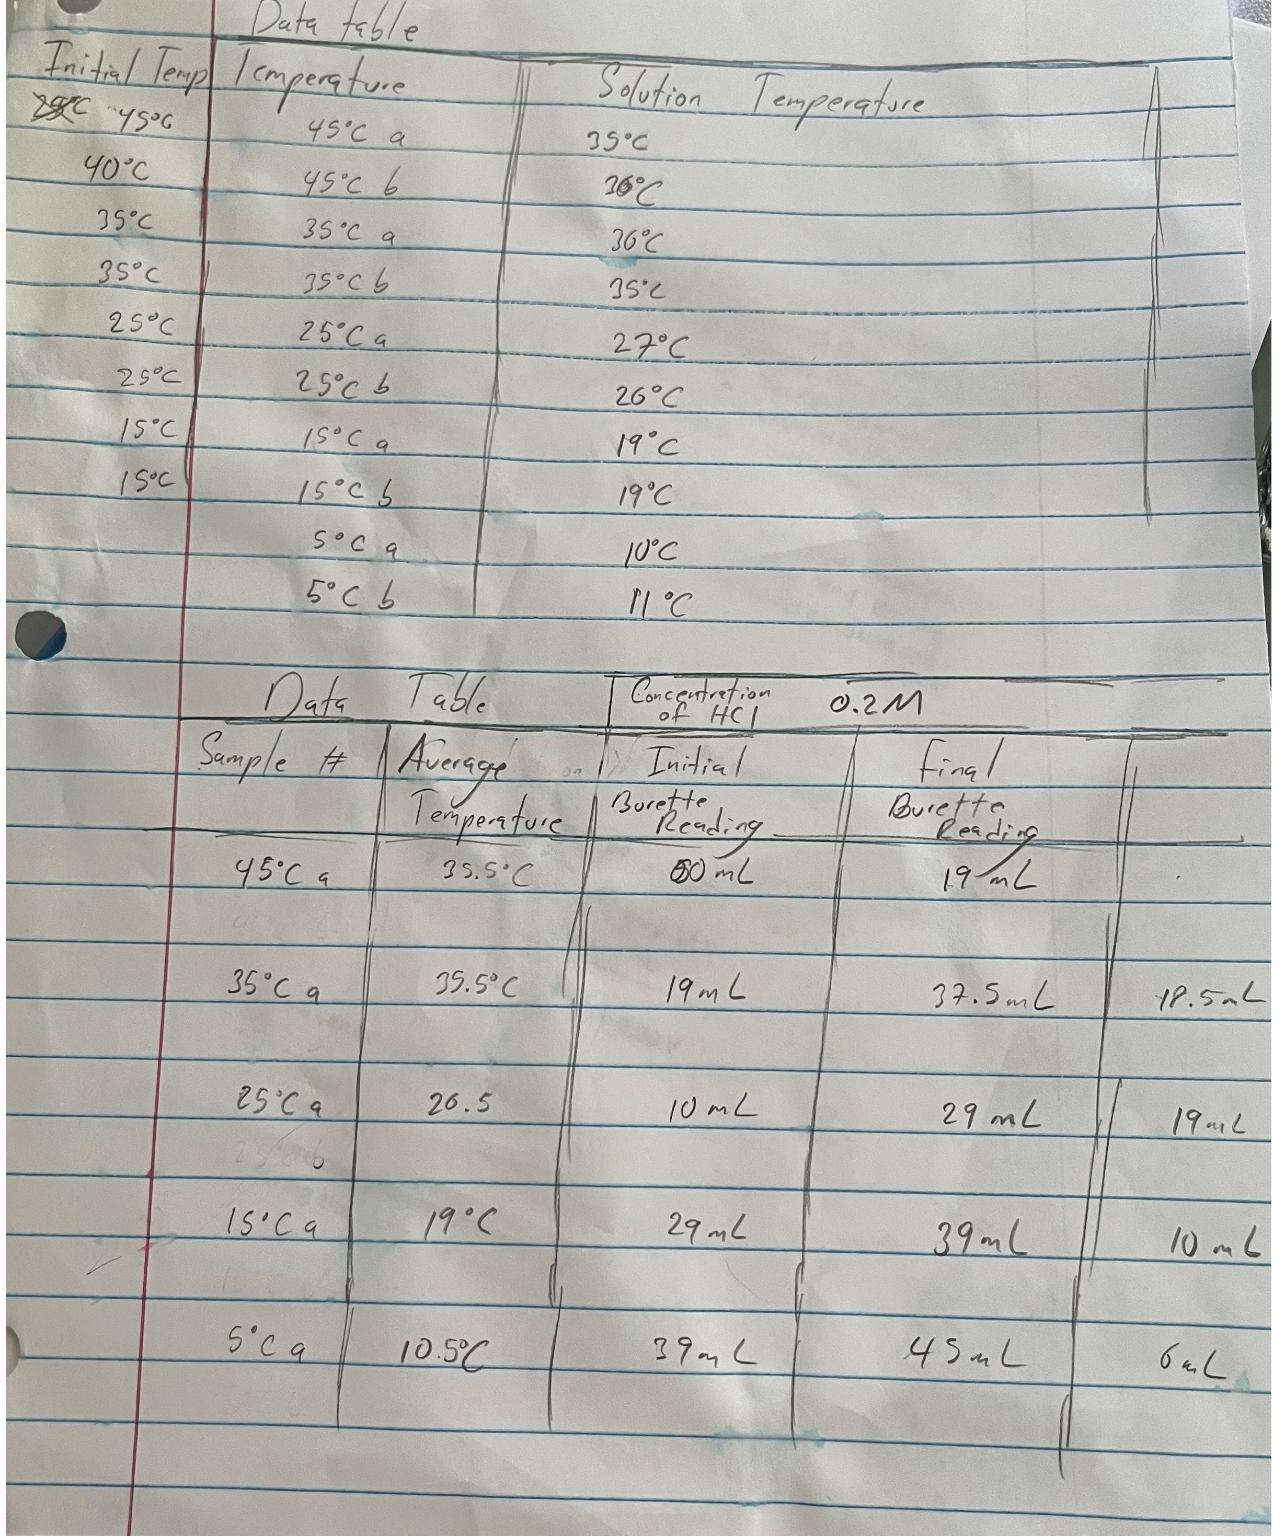 Data table
Initial Temp Temperature Solution Temperature
45°C 45°C a 35°C
40°C 45°C b 36°C
35°C 35°C a 36°C
35°C 35°C b 35°C
25°C 25°C a 27°C
25°C 25°C b 26°C
15°C 15°C a 19°C
15°C 15°C b 19°C
5°C a 10°C
5°C b 11°C
Data Table Concentration of HCl 0.2M
Sample # Average Initial Final
Temperature Burette Reading Burette Reading
45°C a 35.5°C 0 mL 19 mL
35°C a 35.5°C 19 mL 37.5 mL 18.5 mL
25°C a 26.5 10 mL 29 mL 19 mL
15°C a 19°C 29 mL 39 mL 10 mL
5°C a 10.5°C 39 mL 45 mL 6 mL